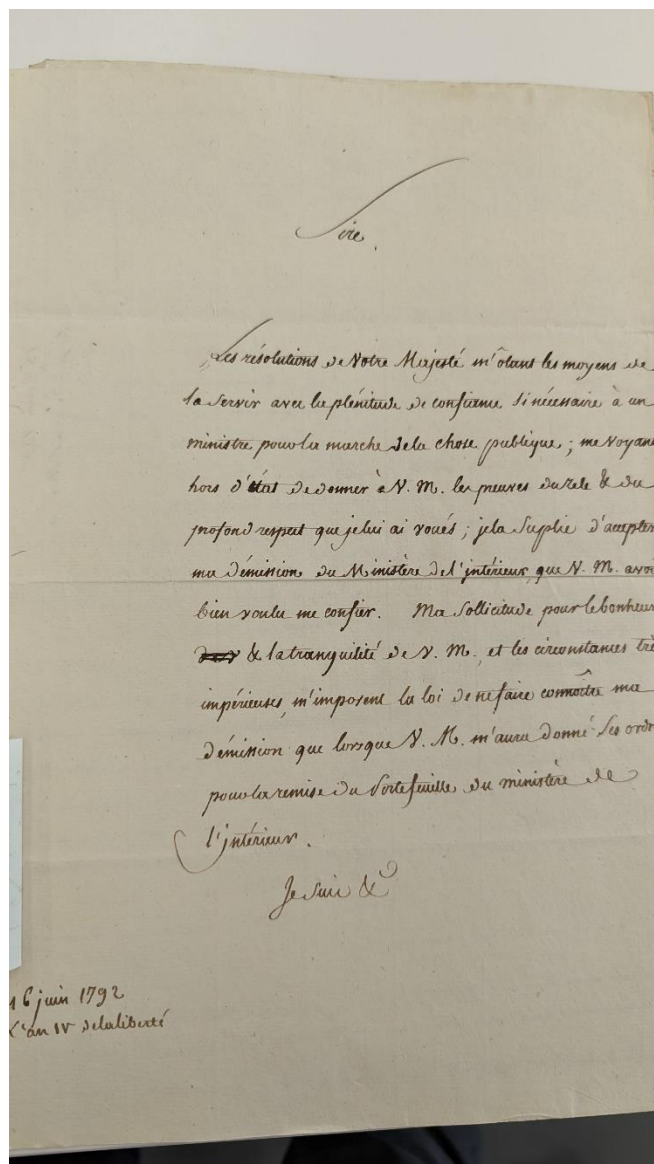 Sire.
Les résolutions de Votre Majesté m'ôtant les moyens de
la Servir avec la plénitude de confiance Si nécessaire à un
ministre pour la marche de la chose publique ; me voyant
hors d'état de donner à V. M. les preuves du zele & du
profond respect que je lui ai voués ; je la Suplie d'accepter
ma démission du Ministère de l'intérieur, que V. M. avoi
bien voulu me confier. Ma Sollicitude pour le bonheur
& la tranquilité de V. M., et les circonstances trè
impérieuses, m'imposent la loi de ne faire connoître ma
démission que lorsque V. M. m'aura donné Ses ordr
pour la remise du Portefeuille du ministère de
l'intérieur.
Je suis &
16 juin 1792
L'an IV de la liberté